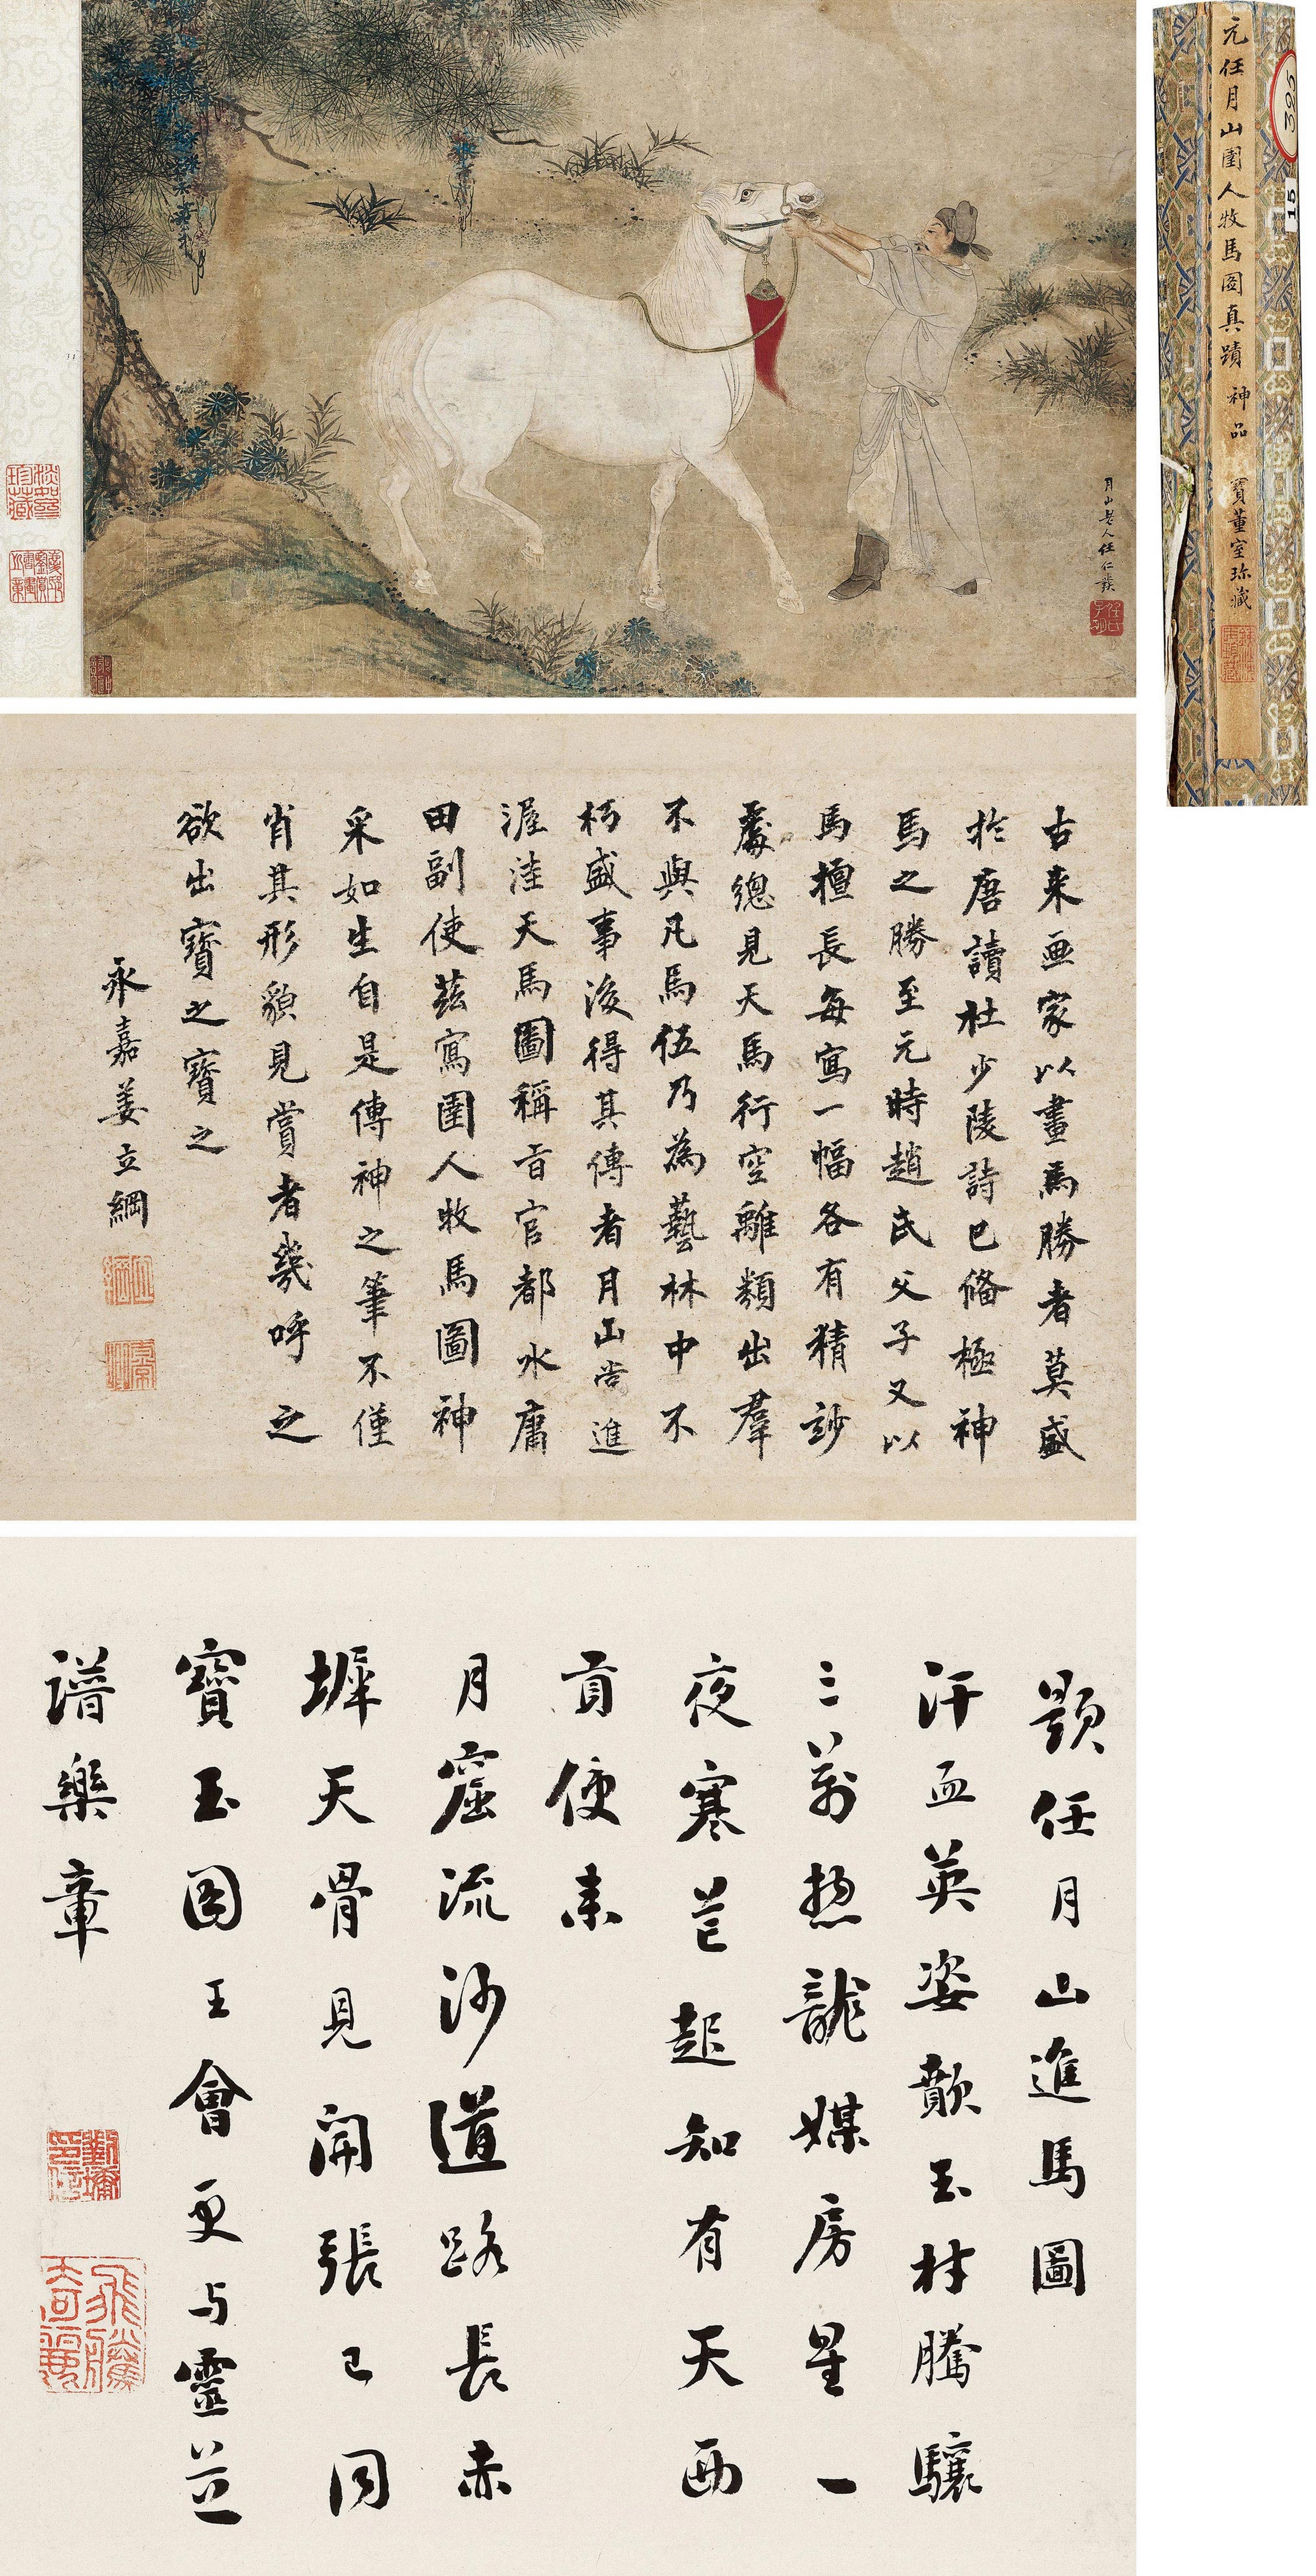 月山人任仁發
任氏子明
元任月山圉人牧馬图真蹟 神品 寶董室珍藏
395
15
古来画家以畫馬勝者莫盛
於唐讀杜少陵詩已俻極神
馬之勝至元時趙氏父子又以
馬擅長每寫一幅各有精妙
處總見天馬行空離類出羣
不與凡馬伍乃為藝林中不
朽盛事後得其傳者月山尚進
渥洼天馬圖稱旨官都水庸
田副使茲寫圉人牧馬圖神
采如生自是傳神之筆不僅
肖其形貌見賞者幾呼之
欲出寶之寶之
永嘉姜立綱
題任月山進馬圖
汗血英姿歕玉材騰驤
三萬惣龍媒房星一
夜寒芒起知有天西
貢使来
月窟流沙道路長赤
墀天骨見開張已同
寶玉图王會更与靈芝
譜樂章
劉墉印信
飛騰綺麗